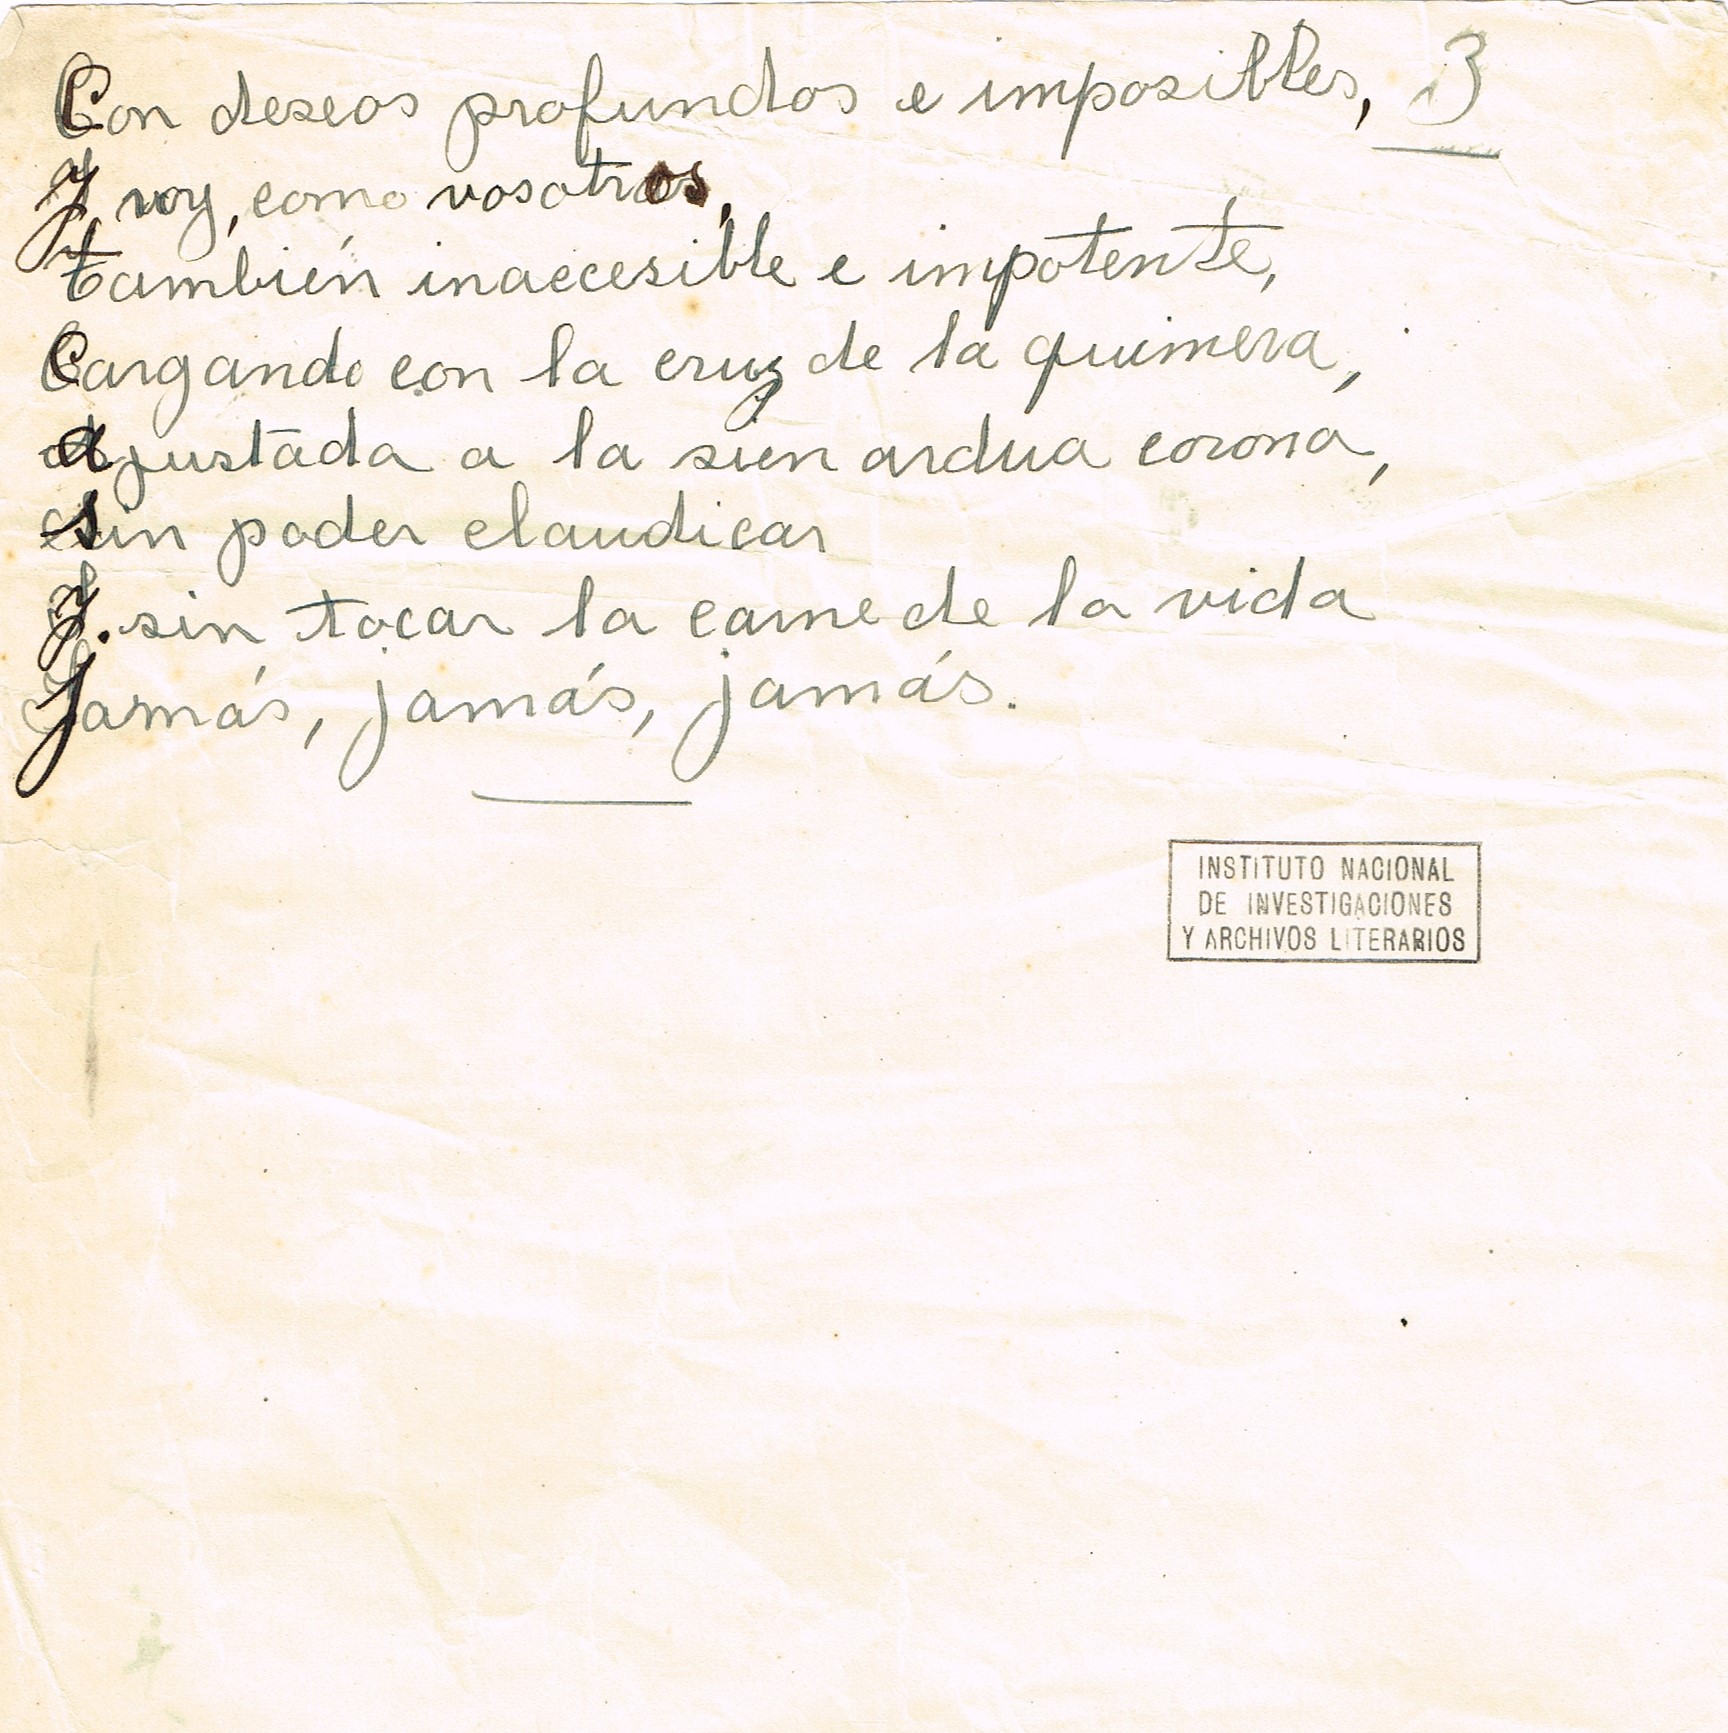 Con deseos profundos e imposibles, 3
y voy, como vosotros,
también inaccesible e impotente,
cargando con la cruz de la quimera,
ajustada a la sien ardua corona,
sin poder claudicar
y sin tocar la carne de la vida
jamás, jamás, jamás.
INSTITUTO NACIONAL
DE INVESTIGACIONES
Y ARCHIVOS LITERARIOS